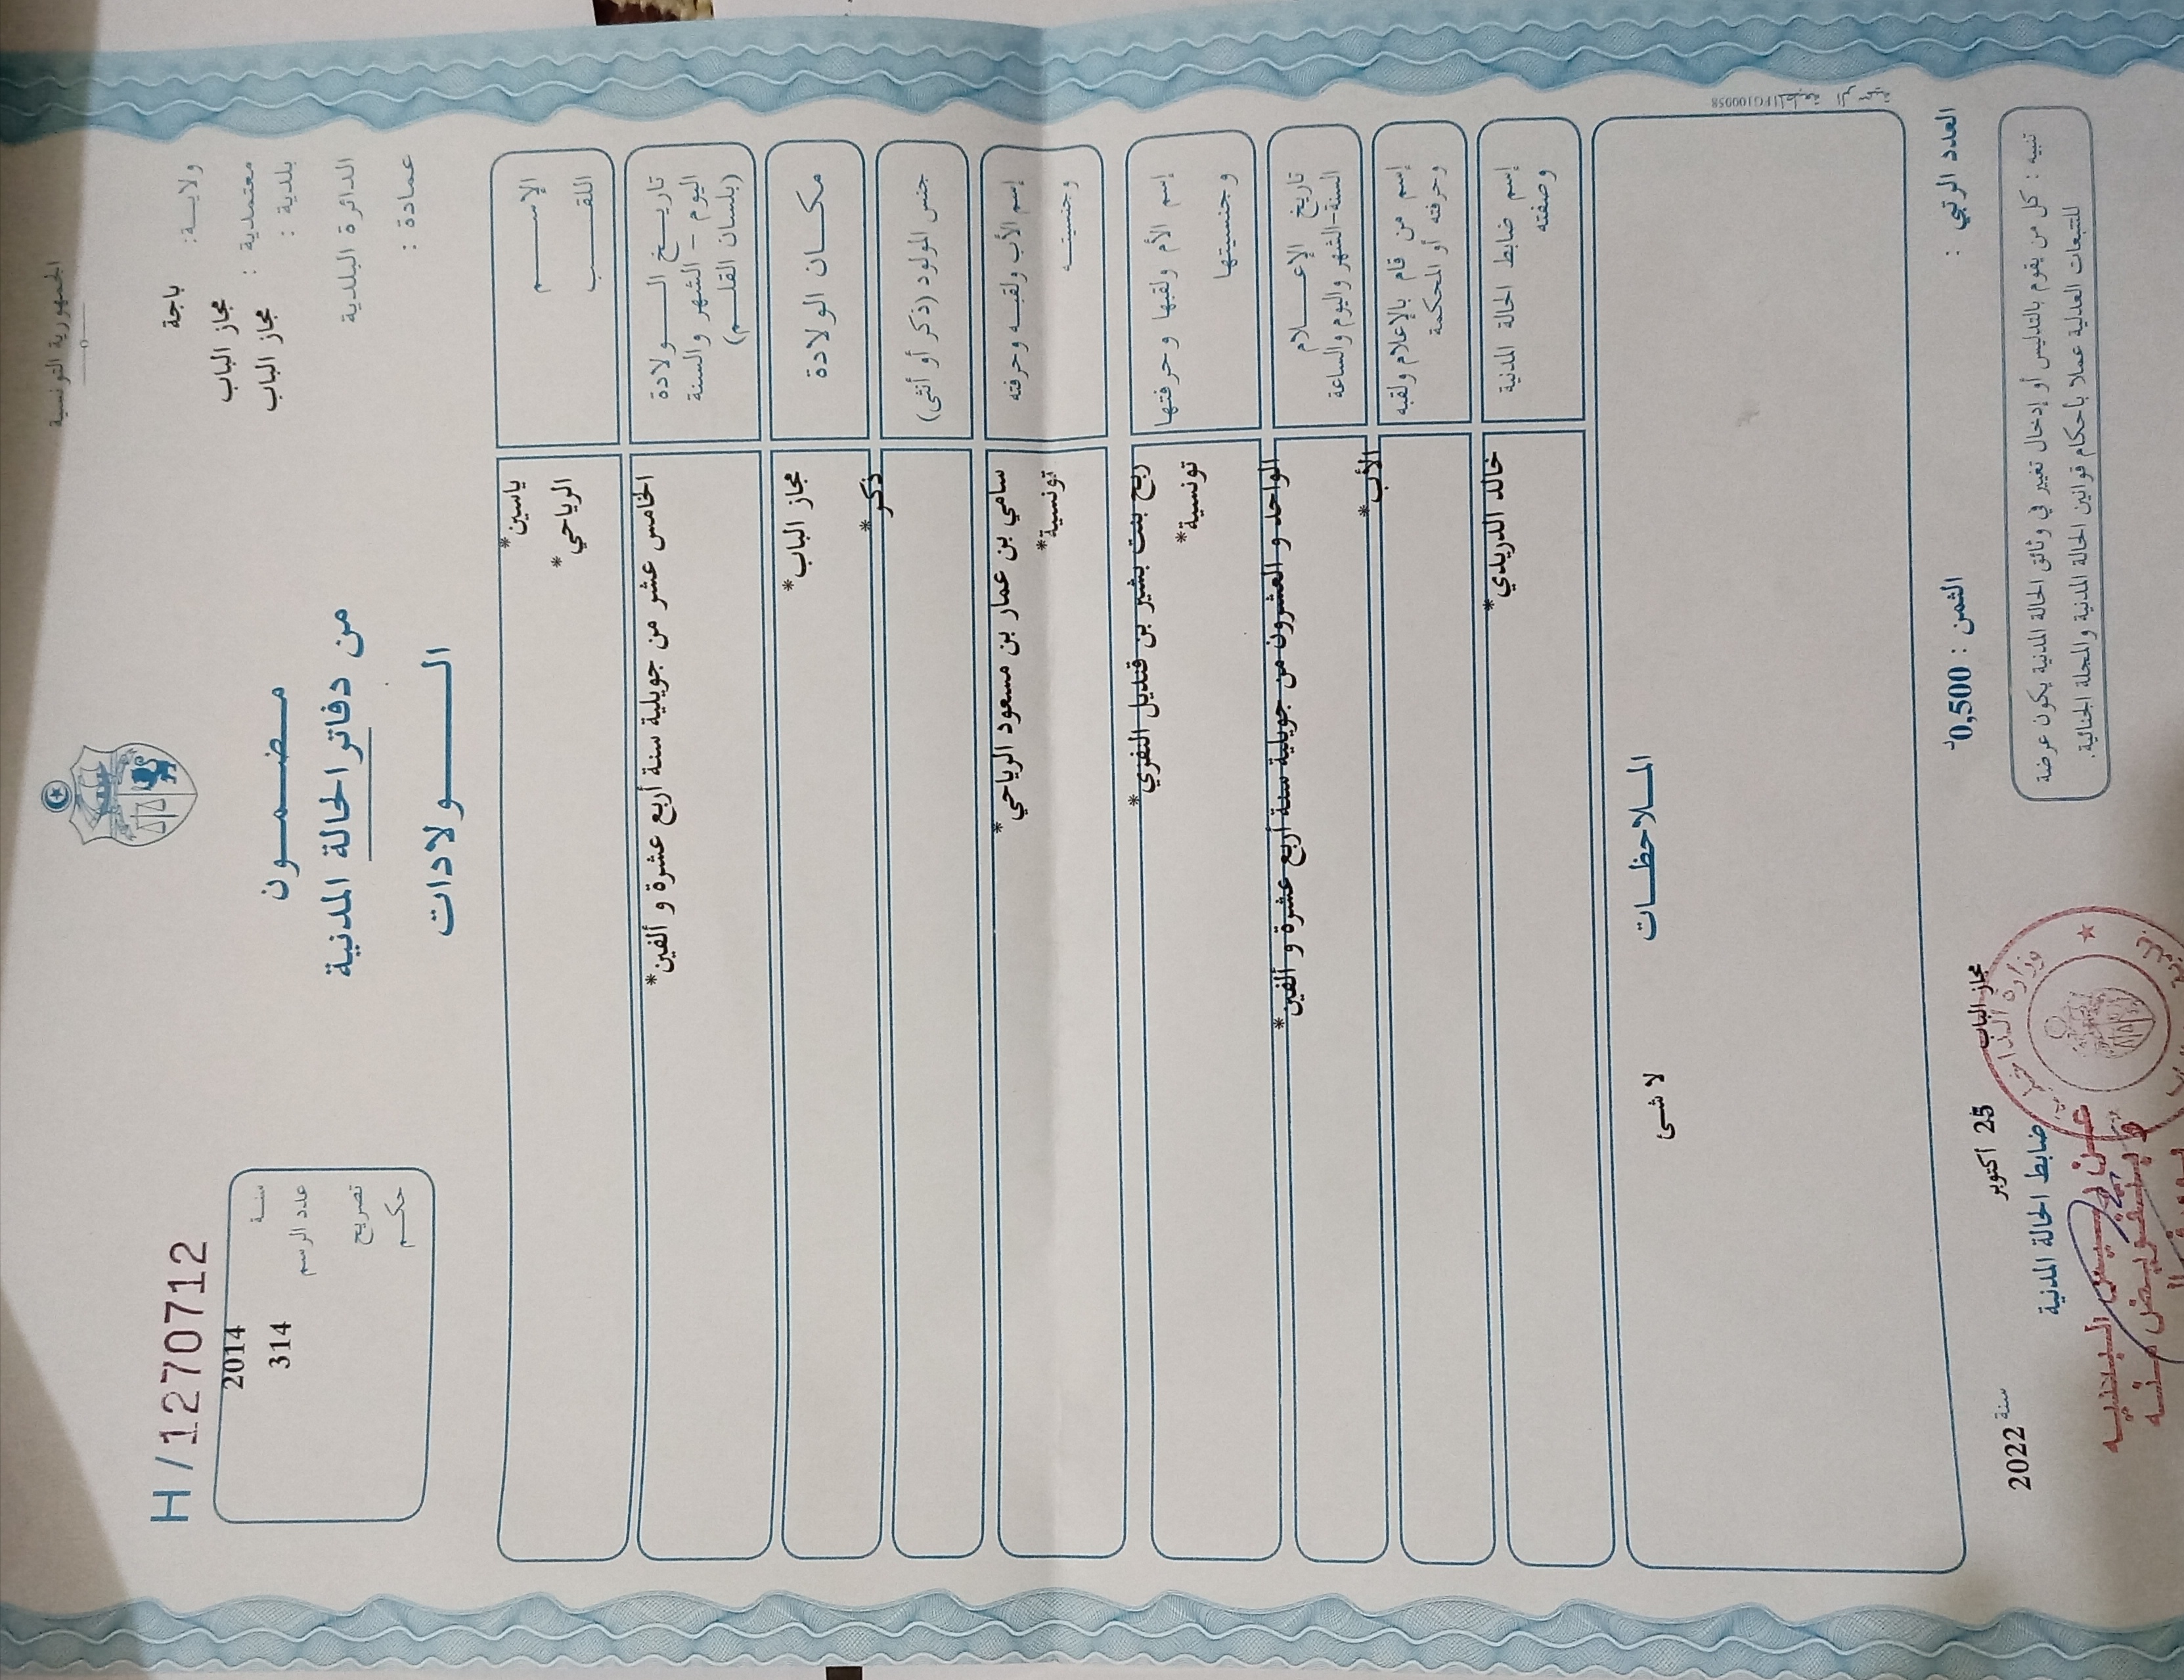 الجمهورية التونسية
ولايــة: باجة
معتمدية : مجاز الباب
بلدية : مجاز الباب
الدائرة البلدية
عمادة :
مـضـمــون
من دفاتر الحالة المدنية
الــــولادات
H/1270712
سنــة 2014
عدد الرسم 314
تصريح
حكــم
الإســـــم ياسين*
اللقـــــب الرياحي*
تاريــخ الــــولادة
اليوم - الشهر والسنة
(بلسان القلــم)
الخامس عشر من جويلية سنة أربع عشرة و ألفين*
مكــان الولادة مجاز الباب*
جنس المولود (ذكر أو أنثى) ذكر*
إسم الأب ولقبــه وحرفته سامي بن عمار بن مسعود الرياحي*
وجنسيتــه تونسية*
إسم الأم ولقبها وحرفتها ربح بنت بشير بن قنديل النفزي*
وجنسيتها تونسية*
تاريخ الإعــــلام
السنة-الشهر واليوم والساعة
الواحد و العشرون من جويلية سنة أربع عشرة و ألفين*
إسم من قام بالإعلام ولقبه
وحرفته أو المحكمة
الأب*
إسم ضابط الحالة المدنية
وصفته
خالد الدريدي*
المــلاحظــات
لا شئ
FG100058 المطبعة الرسمية
العدد الرتبي :
الثمن : 0,500د
مجاز الباب 25 أكتوبر سنة 2022
ضابط الحالة المدنية
تنبيه : كل من يقوم بالتدليس أو إدخال تغيير في وثائق الحالة المدنية يكون عرضة
للتتبعات العدلية عملا بأحكام قوانين الحالة المدنية والمجلة الجنائية.
وزارة الداخلية
عن رئيس البلدية
وبتفويض منه